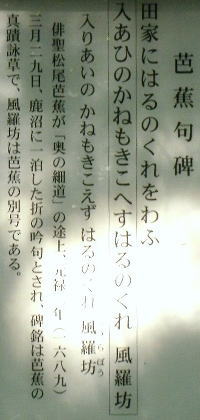 芭蕉句碑
田家にはるのくれをわふ
入あひのかねもきこへすはるのくれ 風羅坊
入りあいの かねもきこえず はるのくれ 風羅坊
ふうらぼう
俳聖松尾芭蕉が「奥の細道」の途上、元禄 年(一六八九)
三月二九日、鹿沼に一泊した折の吟句とされ、碑銘は芭蕉の
真蹟詠草で、風羅坊は芭蕉の別号である。